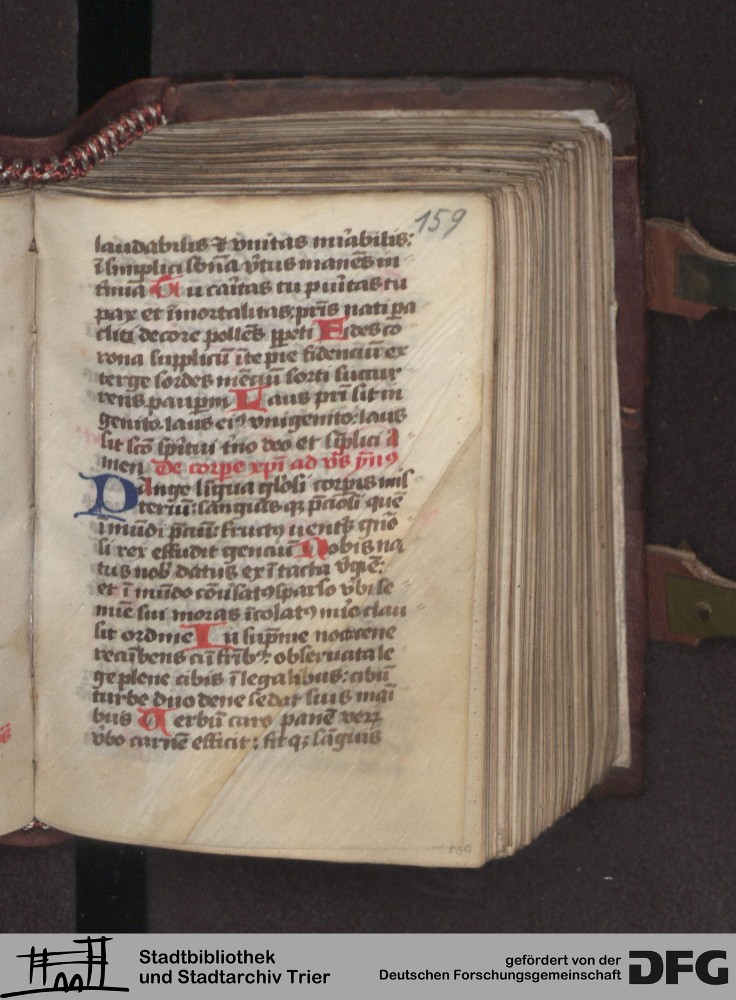 159
laudabilis & vnitas mirabilis:
ī simplici sb̄na v̄tus manēs in
tīnia Tu caītas tu puītas tu
pax et īmortalitas: pr̄is nati pa
cliti decore pollēs ꝑpeti Edes co
rona supplicū īte pie fidenciū ex
terge sordes mēciū sorti succur
rens paupm Laus pr̄i sit in
genito. laus eiꝰ vnigenito: laus
sit sc̄o sp̄itui t̄no deo et sīplici a
men De corpe xp̄i ad v̄s ym̄ꝰ
Pange līgua gl̄osi corp̄is mis
teriū: sanguīsqꝫ p̄ciosi quē
ī mūdi p̄ciū: fructꝰ uentꝭ gn̄o
si rex effudit genciū Nobis na
tus nob̄ datus ex ītacta v̄gīe:
et ī mūdo cōūsatꝰ sparso v̄bi se
mīe sui moras īcolatꝰ mīo clau
sit ordine In sup̄me nocte cene
recūbens cū frīb̄ꝫ: obseruata le
ge plene cibis ī legalibus: cibū
turbe duodene se dat suis maī
bus Verbū caro panē veꝝ
v̄bo carnē efficit: fitqꝫ sāguis
Stadtbibliothek
und Stadtarchiv Trier
gefördert von der
Deutschen Forschungsgemeinschaft
DFG